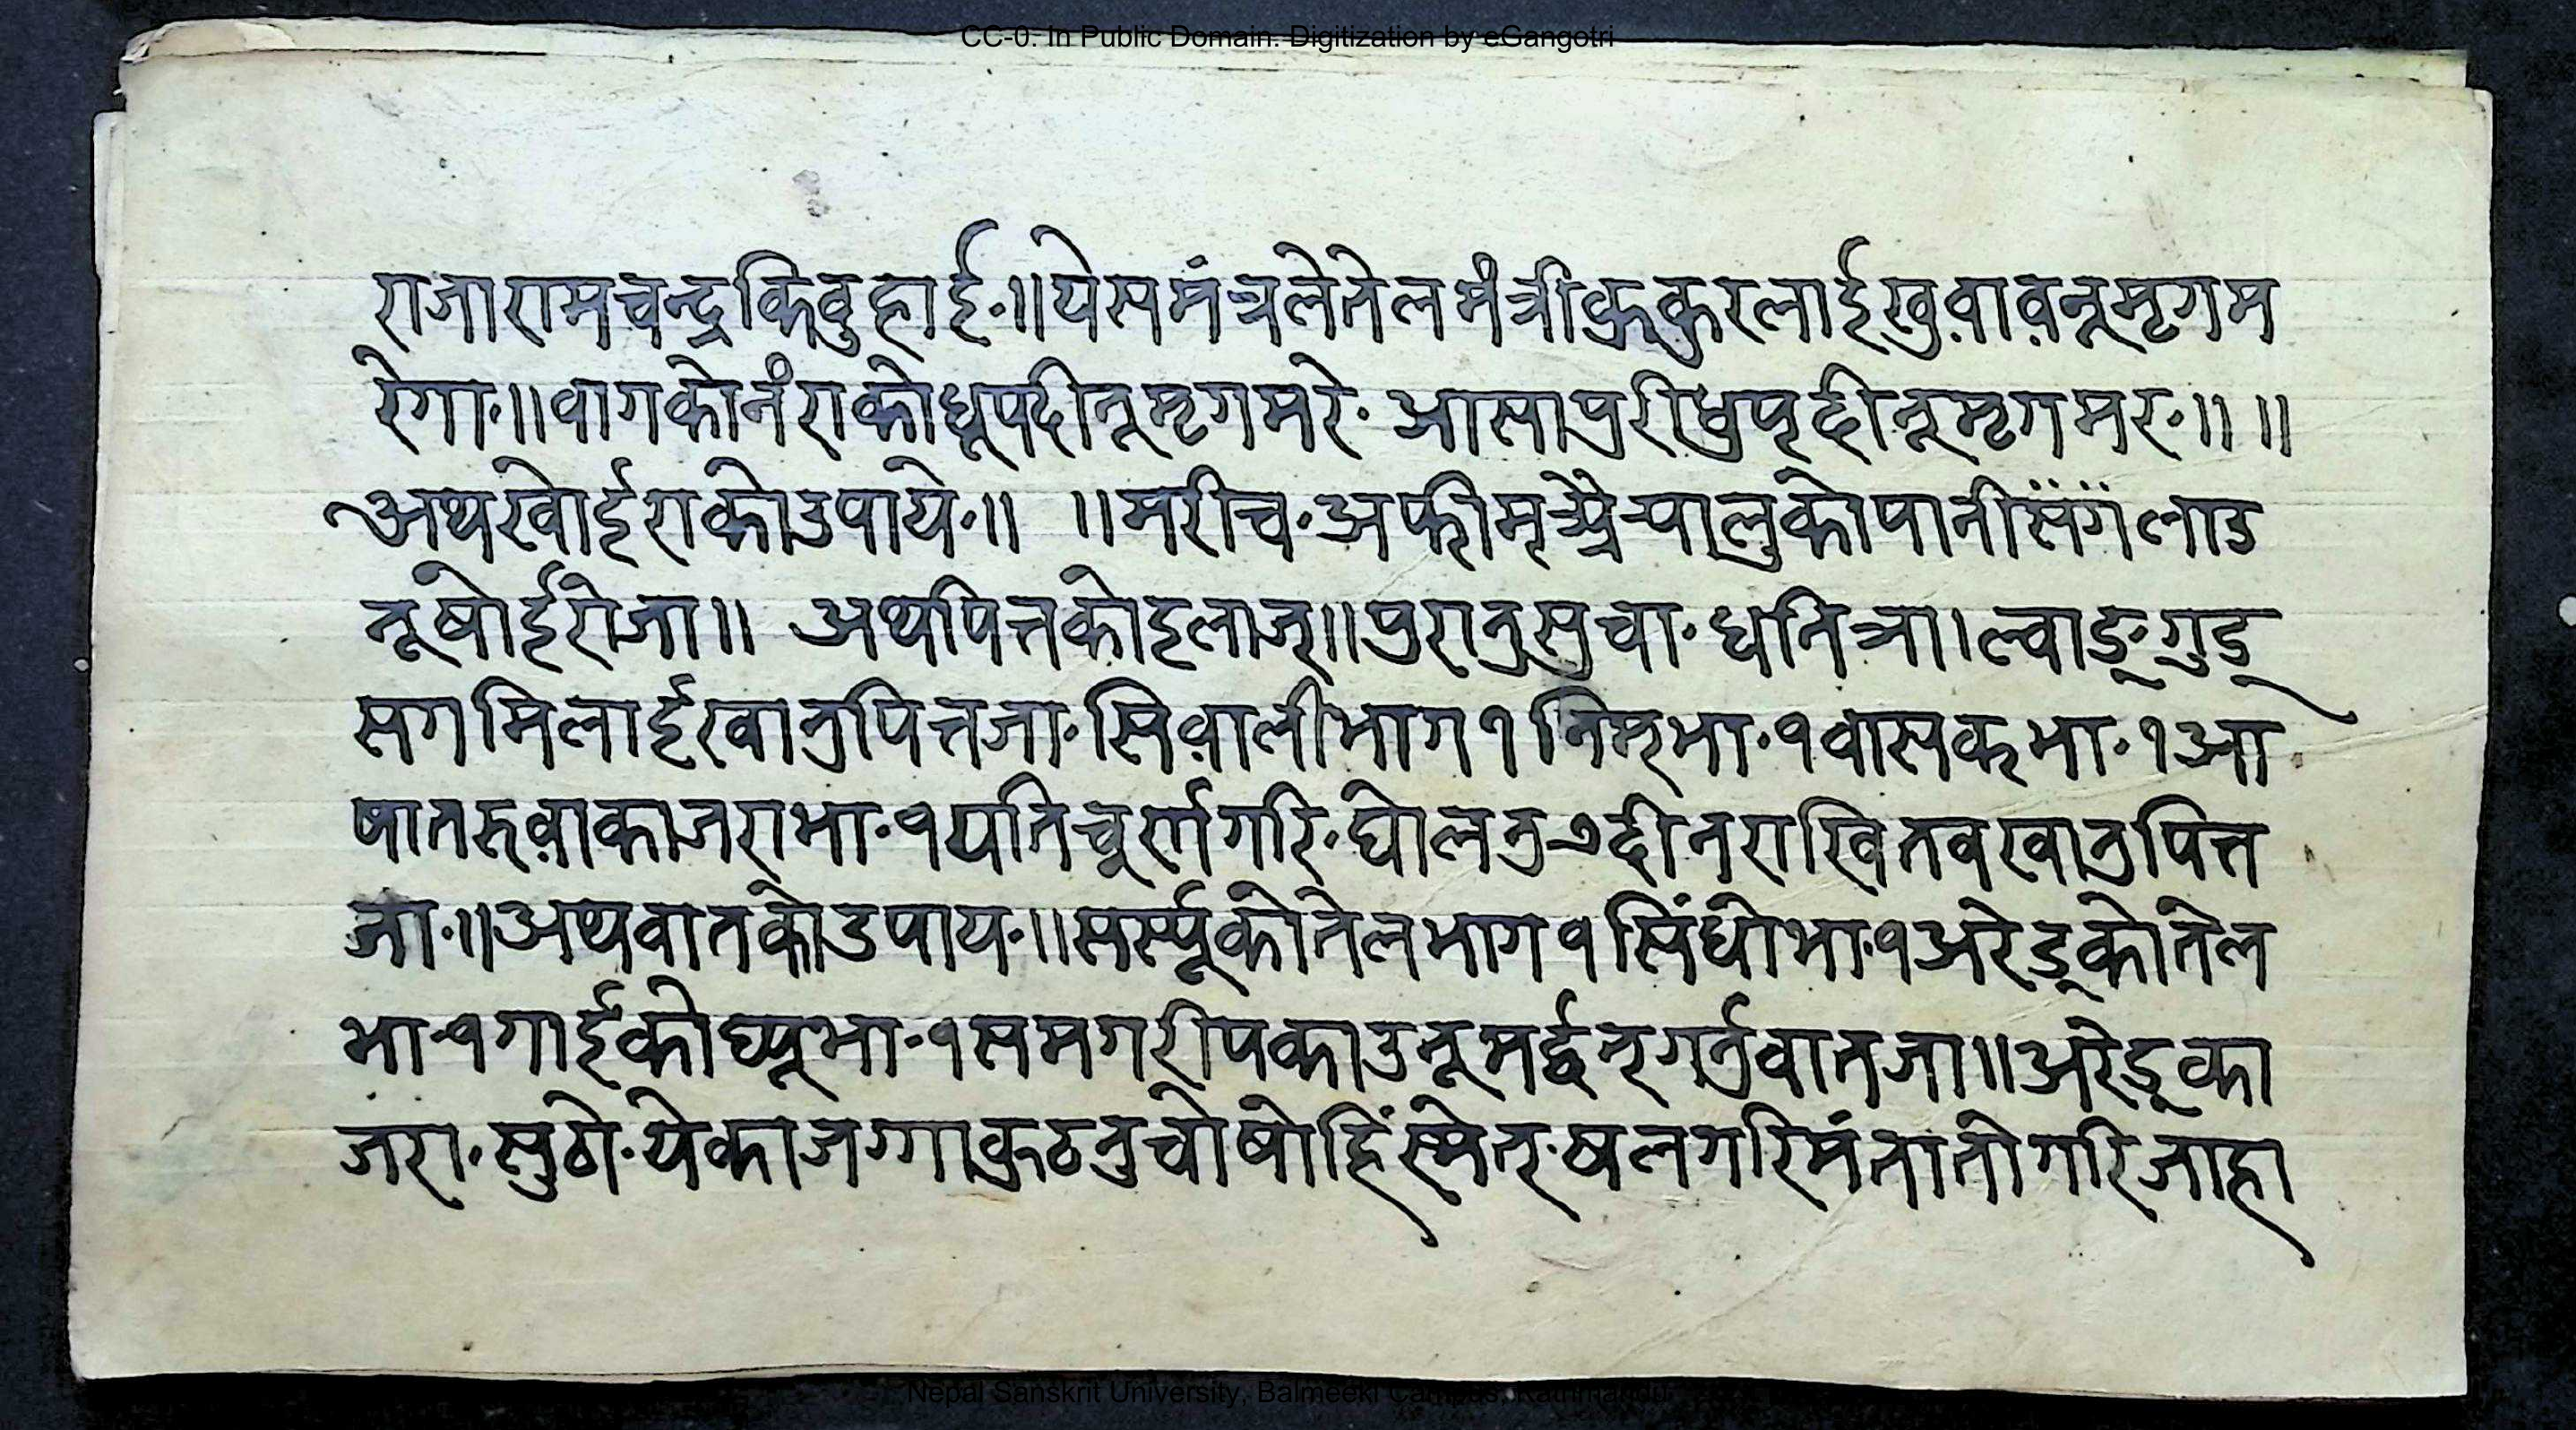 CC-0. In Public Domain. Digitization by eGangotri
राजारामचन्द्रकिदुहाई॰॥येसमंत्रलेतेलमंत्रीकुकुरलाईखुवा़व़नूमृगम
रेगा॰॥वागकोनंराकोधूपदीनूमृगमरे॰ आसापुरीधुपदीनूमृगमर॰॥ ॥
अथखोईराकोउपाये॰॥ ॥मरीच॰अफीम् पालुकोपानीसंगलाउ
नूषोईरोजा॥ अथपित्तकोइलाज॥पुरानुसुचा॰धनिञा।ल्वाङ्गुड्
सगमिलाईखानुपित्तजा॰सिवा़लीभाग१निम्भा॰१वासकभा॰१आ
षातरुवा़काजराभा॰१यतिचूर्णगरि॰घोलनु७दीनराखितवखानुपित्त
जा॰॥अथवातकोउपाय॰॥सर्स्यूकोतेलभाग१सिंधोभा॰१अरेड्कोतेल
भा१गाईकोघ्यूभा॰१समगरीपकाउनूमर्द्धनगर्नुवातजा॥अरेड्का
जरा॰सुठो॰येकाजग्गाकुठनुचोषोहिंस्मेत॰षलगरिमंतातोगरिजाहा
Nepal Sanskrit University, Balmeeki Campus, Kathmandu